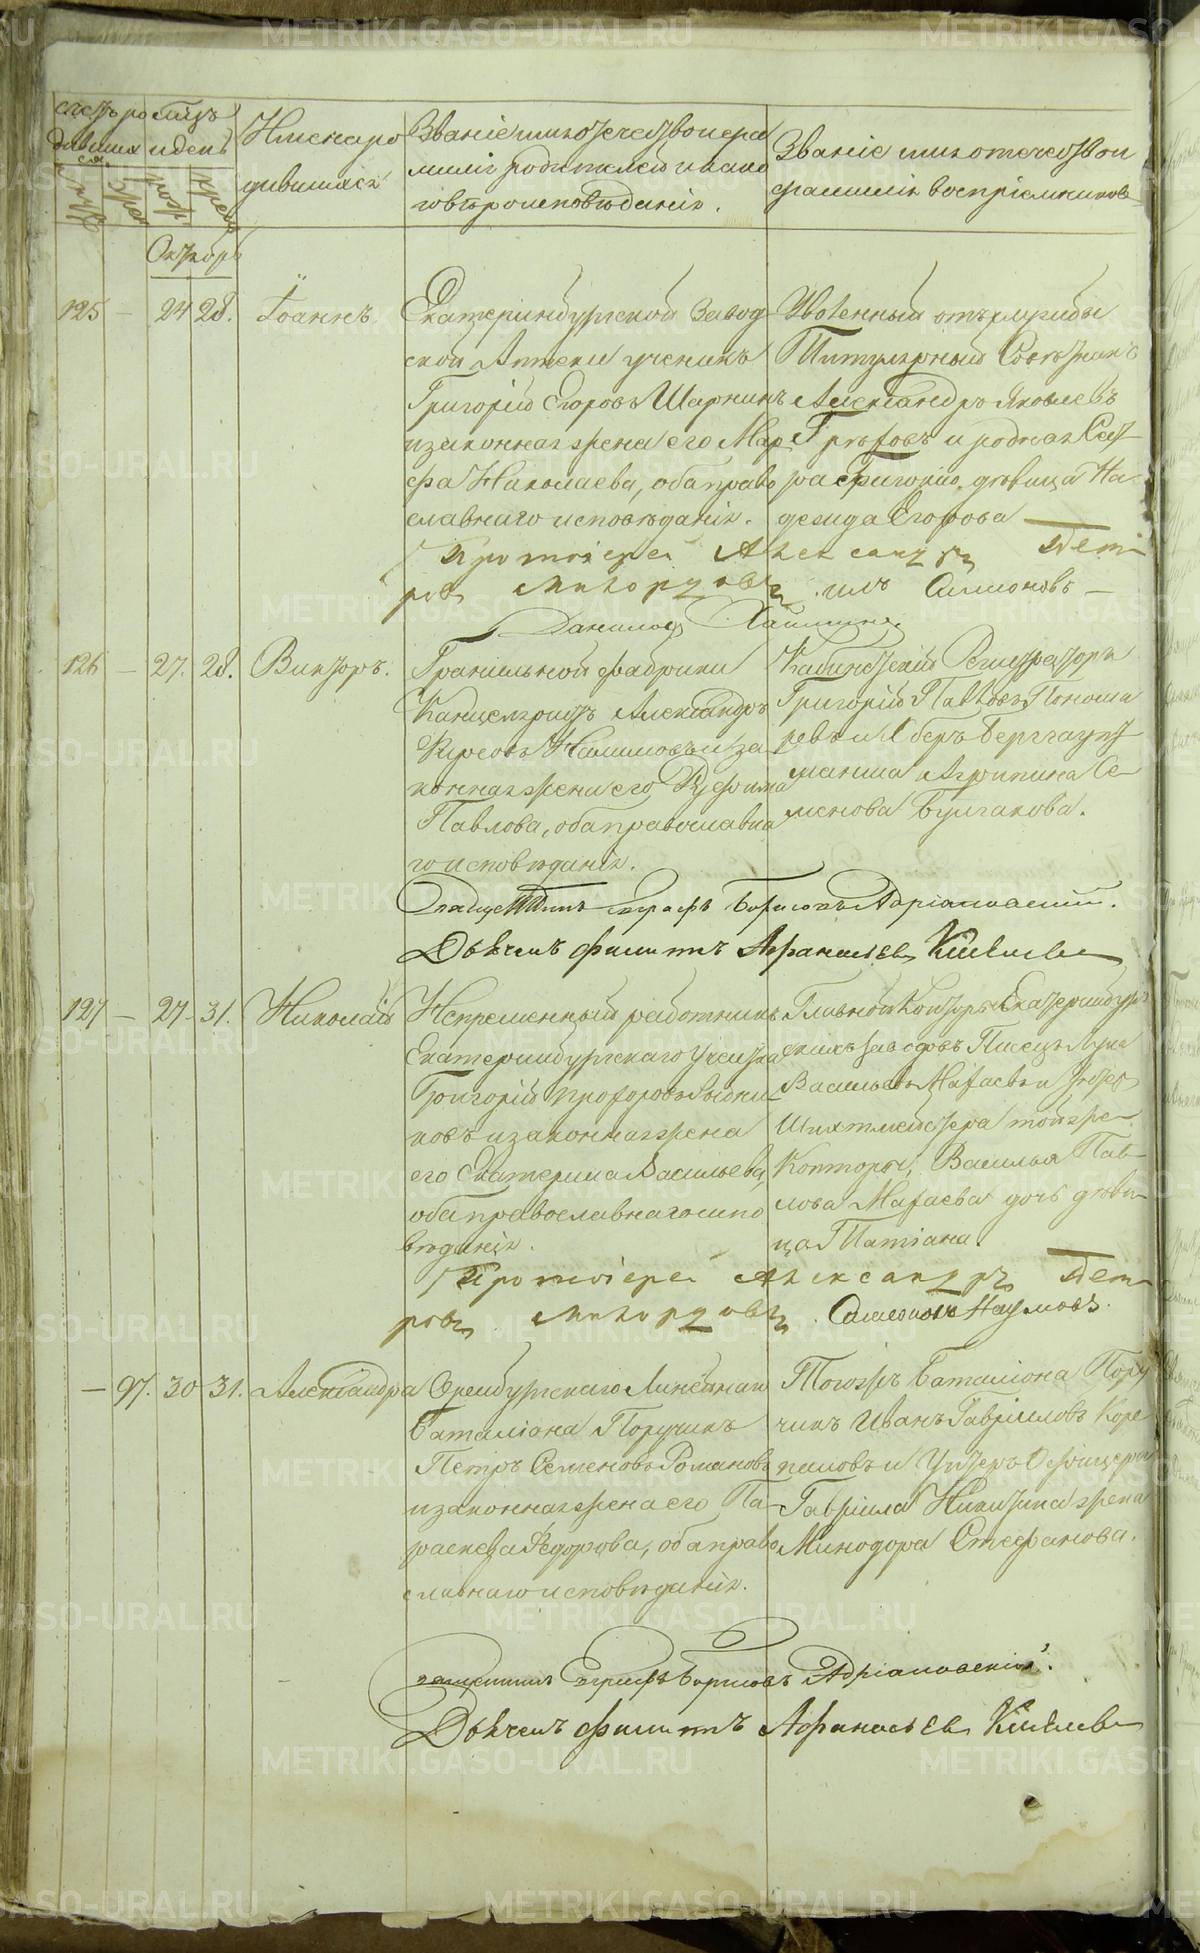 счетъ ро
дившихся
мѣсяцъ
и день
Имена ро
дившихся
Званіе имя отечество и фа
милія родителей и како
го вѣроисповѣданія.
Званіе имя отечество и
фамилія воспріемниковъ
Октябрь
125 — 24 28. Іоаннъ
Екатеринбургской Завод
ской Аптеки ученикъ
Григорій Егоровъ Шарнинъ
и законная жена его Мар
фа Николаева, оба право
славнаго исповѣданія.
Уволенный отъ службы
Титулярный Совѣтникъ
Александръ Яковлевъ
и родная Сест
ра Григорію, дѣвица На
дежда Егорова
Протоіерей Александръ Пет
ровъ
Симоновъ
126 — 27. 28. Викторъ.
Гранильной фабрики
Канцеляристъ Александръ
и за
конная жена его Евфима
Павлова, оба православна
го исповѣданія.
Кабинетскій Регистраторъ
Григорій Павловъ Понома
ревъ и Оберъ Берггаупт
манша Агрипина Се
менова Булгакова.
Священникъ Евграфъ Борисовъ Адріановскій.
Дьячекъ Филиппъ Афанасьевъ Киселевъ
127 — 27 31. Николай
Непременный работникъ
Екатеринбургскаго
Григорій Прохоровъ
ковъ и законная жена
его Екатерина Васильева,
оба православнаго испо
вѣданія.
Главной Конторы Екатеринбург
скихъ заводовъ Писецъ Лука
Васильевъ Магаевъ и Унтеръ
Шихтмейстера той же
Конторы, Василья Пав
лова Магаева дочь дѣви
ца Татіана.
Протоіерей Александръ Пет
ровъ
Симеонъ Наумовъ.
— 97. 30 31. Александра
Оренбургскаго Линейнаго
Баталіона Поручикъ
Петръ Семеновъ Романовъ
и законная жена его Па
раскева Федорова, оба право
славнаго исповѣданія.
Того жъ Баталіона Пору
чикъ Иванъ Гавріиловъ Коре
пановъ и Унтеръ Офицера
Гавріила Никитина жена
Минодора Стефанова.
Священникъ Евграфъ Борисовъ Адріановскій.
Дьячекъ Филиппъ Афанасьевъ Киселевъ
METRIKI.GASO-URAL.RU